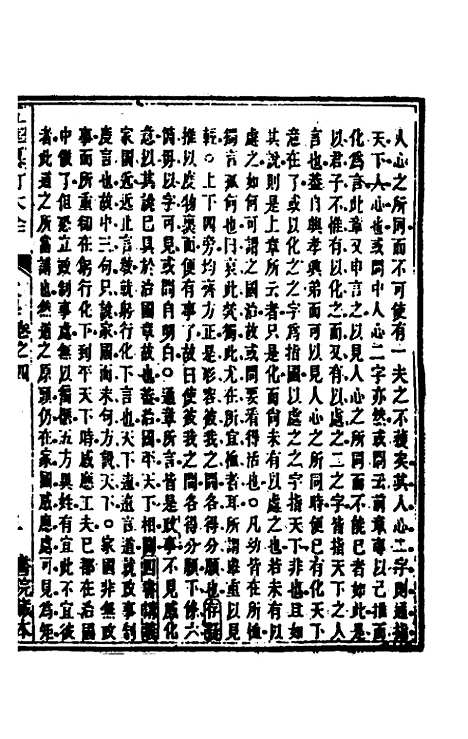 人心之所同而不可使有一夫之不獲矣其人心二字則通指
天下人心也或問中人心二字亦然或問云前章專以己推而
化為言此章又申言之以見人心之所同而不能已者如此是
以君子不惟有以化之而又有以處之二之字皆指天下之人
言也蓋自與孝與弟而可以見人心之所同時便已有化天下
意在了或以化之之字為指國以處之之字指天下非也且如
其說則是上章所云者只是化而未有以處之也若未有以
處之如何可謂之國治故或問要看得活也○凡幼皆在所恤
獨言孤何也曰哀此煢獨此尤在所宜恤者耳所謂舉重以見
輕○上下四旁均齊方正是形容彼我之間各得分願也存疑
推以度物裏面便有事了故曰使彼我之間各得分願下條六
箇毋以字可見或問自明白○通章所言皆是政事不見感化
意以其說已具於治國章故也蓋治國平天下相因四書
家國近近止言教就躬行化下言也天下遠遠言道就政事制
度言也故中只說家國而末句方說天下○家國非無政
事而所重卻在躬行化下到平天下時感應工夫已都在治國
中做了但恐立政制事處無以五方異姓有宜此不宜彼
者此道之所當講也然道之原頭仍在家國感應處可見為矩
五經大全
卷之四
書院藏本